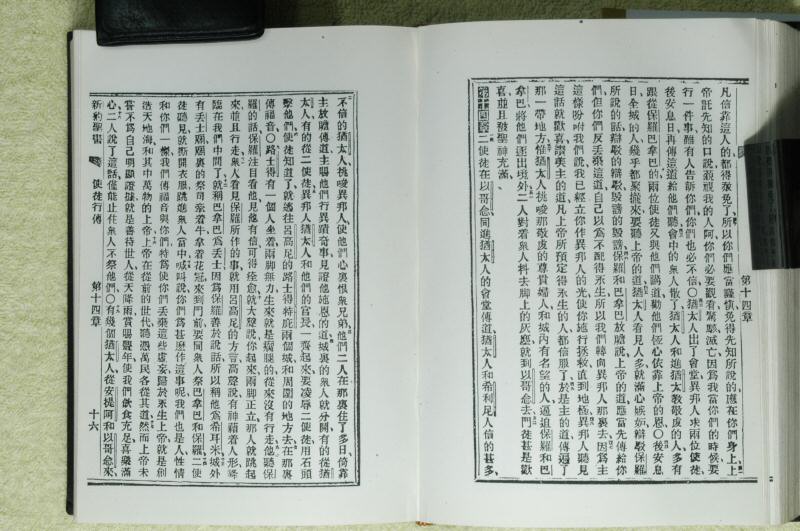 第十四章
凡信靠這人的都得赦免了所以你們應當謹慎免得先知所說的應在你們身上上
帝託先知的口說藐視我的人阿你們必要觀看驚駭滅亡因爲我當你們的時候要
行一件事雖有人告訴你們你們也必不信○猶太人出了會堂異邦人求兩位使徒
後安息日再傳這道給他們聽會中的衆人散了猶太人和進猶太教敬虔的人多有
跟從保羅巴拿巴的兩位使徒又與他們講道勸他們恆心依靠上帝的恩○後安息
日全城的人幾乎都聚攏來要聽上帝的道猶太人看見人多就滿心嫉妒辯駁保羅
所說的話辯駁的辯駁毀謗的毀謗保羅和巴拿巴放膽說上帝的道應當先傳給你
們但你們反丟棄這道自己以爲不配得永生所以我們轉向異邦人那裏去因爲主
這樣吩咐我們說我已經立你作異邦人的光使你施行拯救直到地極異邦人聽見
這話就歡喜讚美主的道凡上帝所預定得永生的人都信服了於是主的道傳遍了
那一帶地方惟猶太人挑唆那敬虔的尊貴婦人和城內有名望的人逼迫保羅和巴
拿巴將他們逐出境外二人對着衆人抖去脚上的灰塵就到以哥念去門徒甚是歡
喜並且被聖神充滿
第十四章二使徒在以哥念同進猶太人的會堂傳道猶太人和希利尼人信的甚多
不信的猶太人挑唆異邦人使他們心裏恨衆兄弟他們二人在那裏住了多日倚靠
主放膽傳道主賜他們行異蹟奇事見證他施恩的道城裏的衆人就分開有的從猶
太人有的從二使徒異邦人猶太人和他們的官長一齊起來要凌辱二使徒用石頭
擊他們使徒知道了就逃往呂高尼的路士得特庇兩個城和周圍的地方去在那裏
傳福音○路士得有一個人坐着兩脚無力生來就是瘸腿的從來沒有行走他聽保
羅的話保羅注目看他見他有信可得痊愈就大聲說你起來兩脚正立那人就跳起
來並且行走衆人看見保羅所作的事就用呂高尼的方言高聲說有神藉着人形降
臨在我們中間了就稱巴拿巴爲丟士因爲保羅善於說話所以稱他爲希耳米城外
有丟士廟廟裏的祭司牽着牛拿着花冠來到門前要同衆人祭巴拿巴和保羅二使
徒聽見就撕開衣服跳進衆人當中喊叫說你們爲甚麽作這事呢我們也是人性情
和你們一樣我們傳福音與你們特爲使你們丟棄這些虛妄歸於永生上帝就是創
造天地海和其中萬物的上帝上帝在從前的世代聽憑萬民各從其道然而上帝未
嘗不爲自己明顯證據就是善待世人從天降雨賞賜豐年使我們飲食充足喜樂滿
心二人說了這話僅能止住衆人不祭他們○有幾個猶太人從安提阿和以哥念來
新約聖書 使徒行傳 第十四章 十六